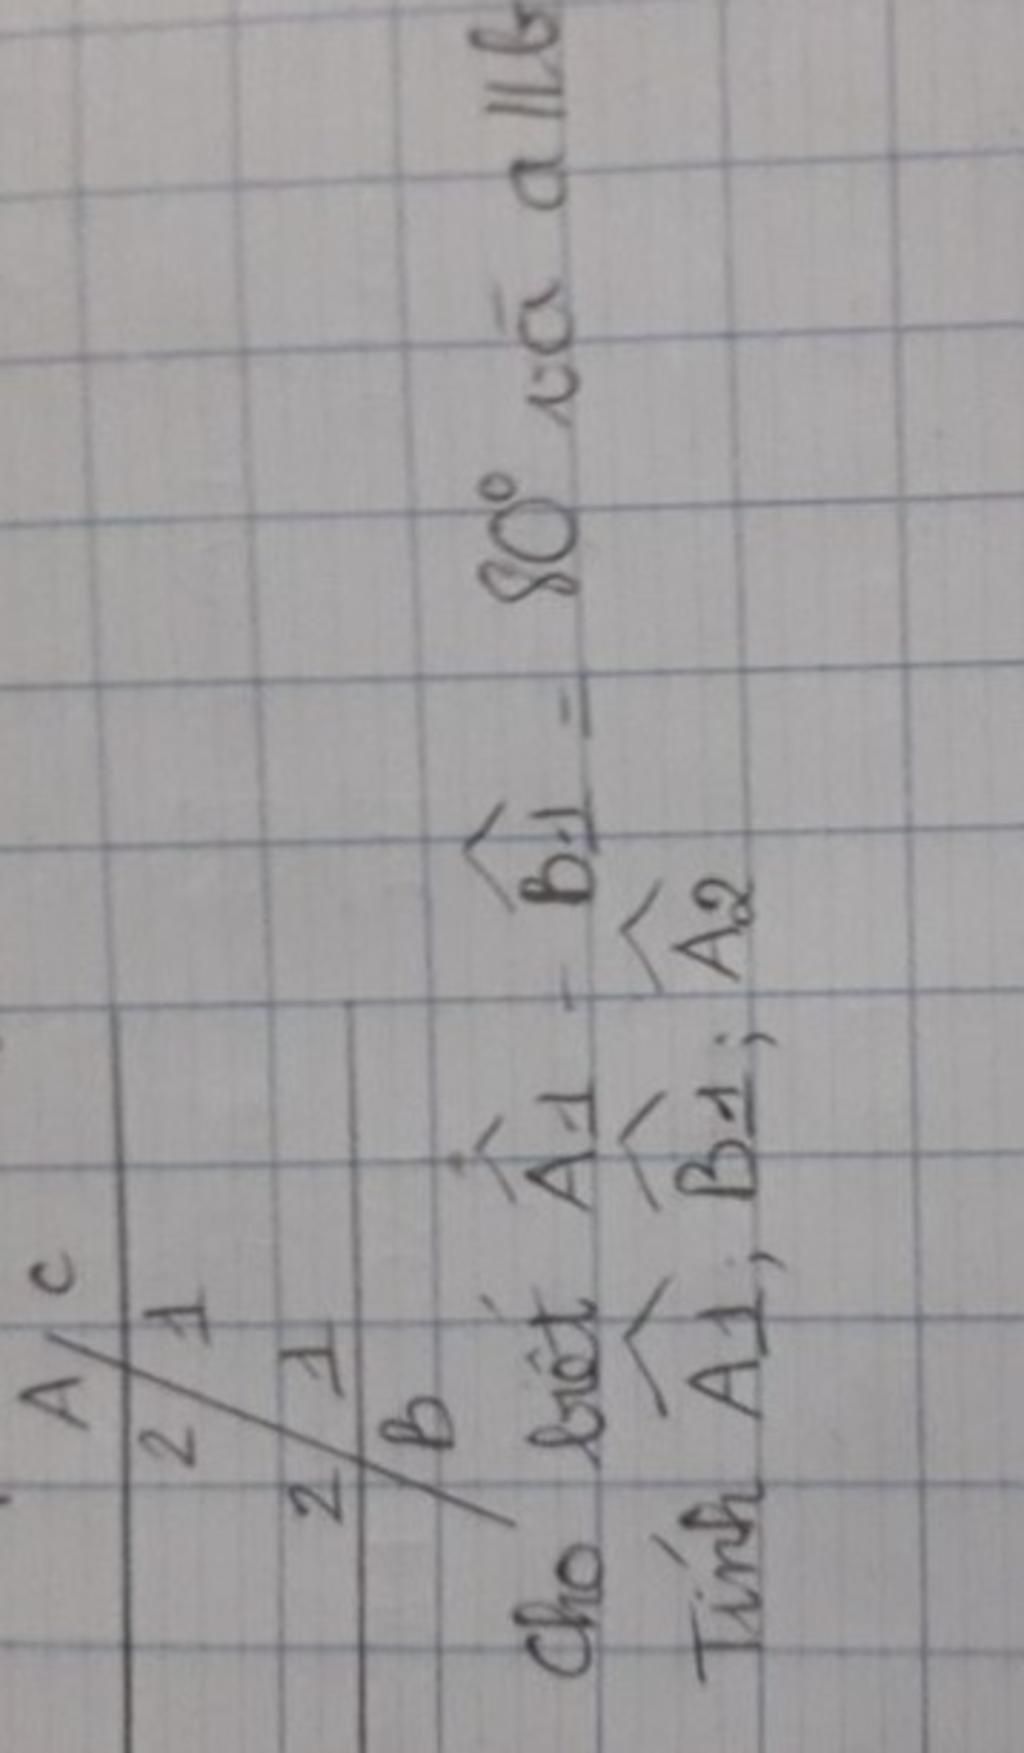 A c
2 1
2 1
B
Cho biết Â1 - B̂1 = 80° và a // b
Tính Â1; B̂1; Â2